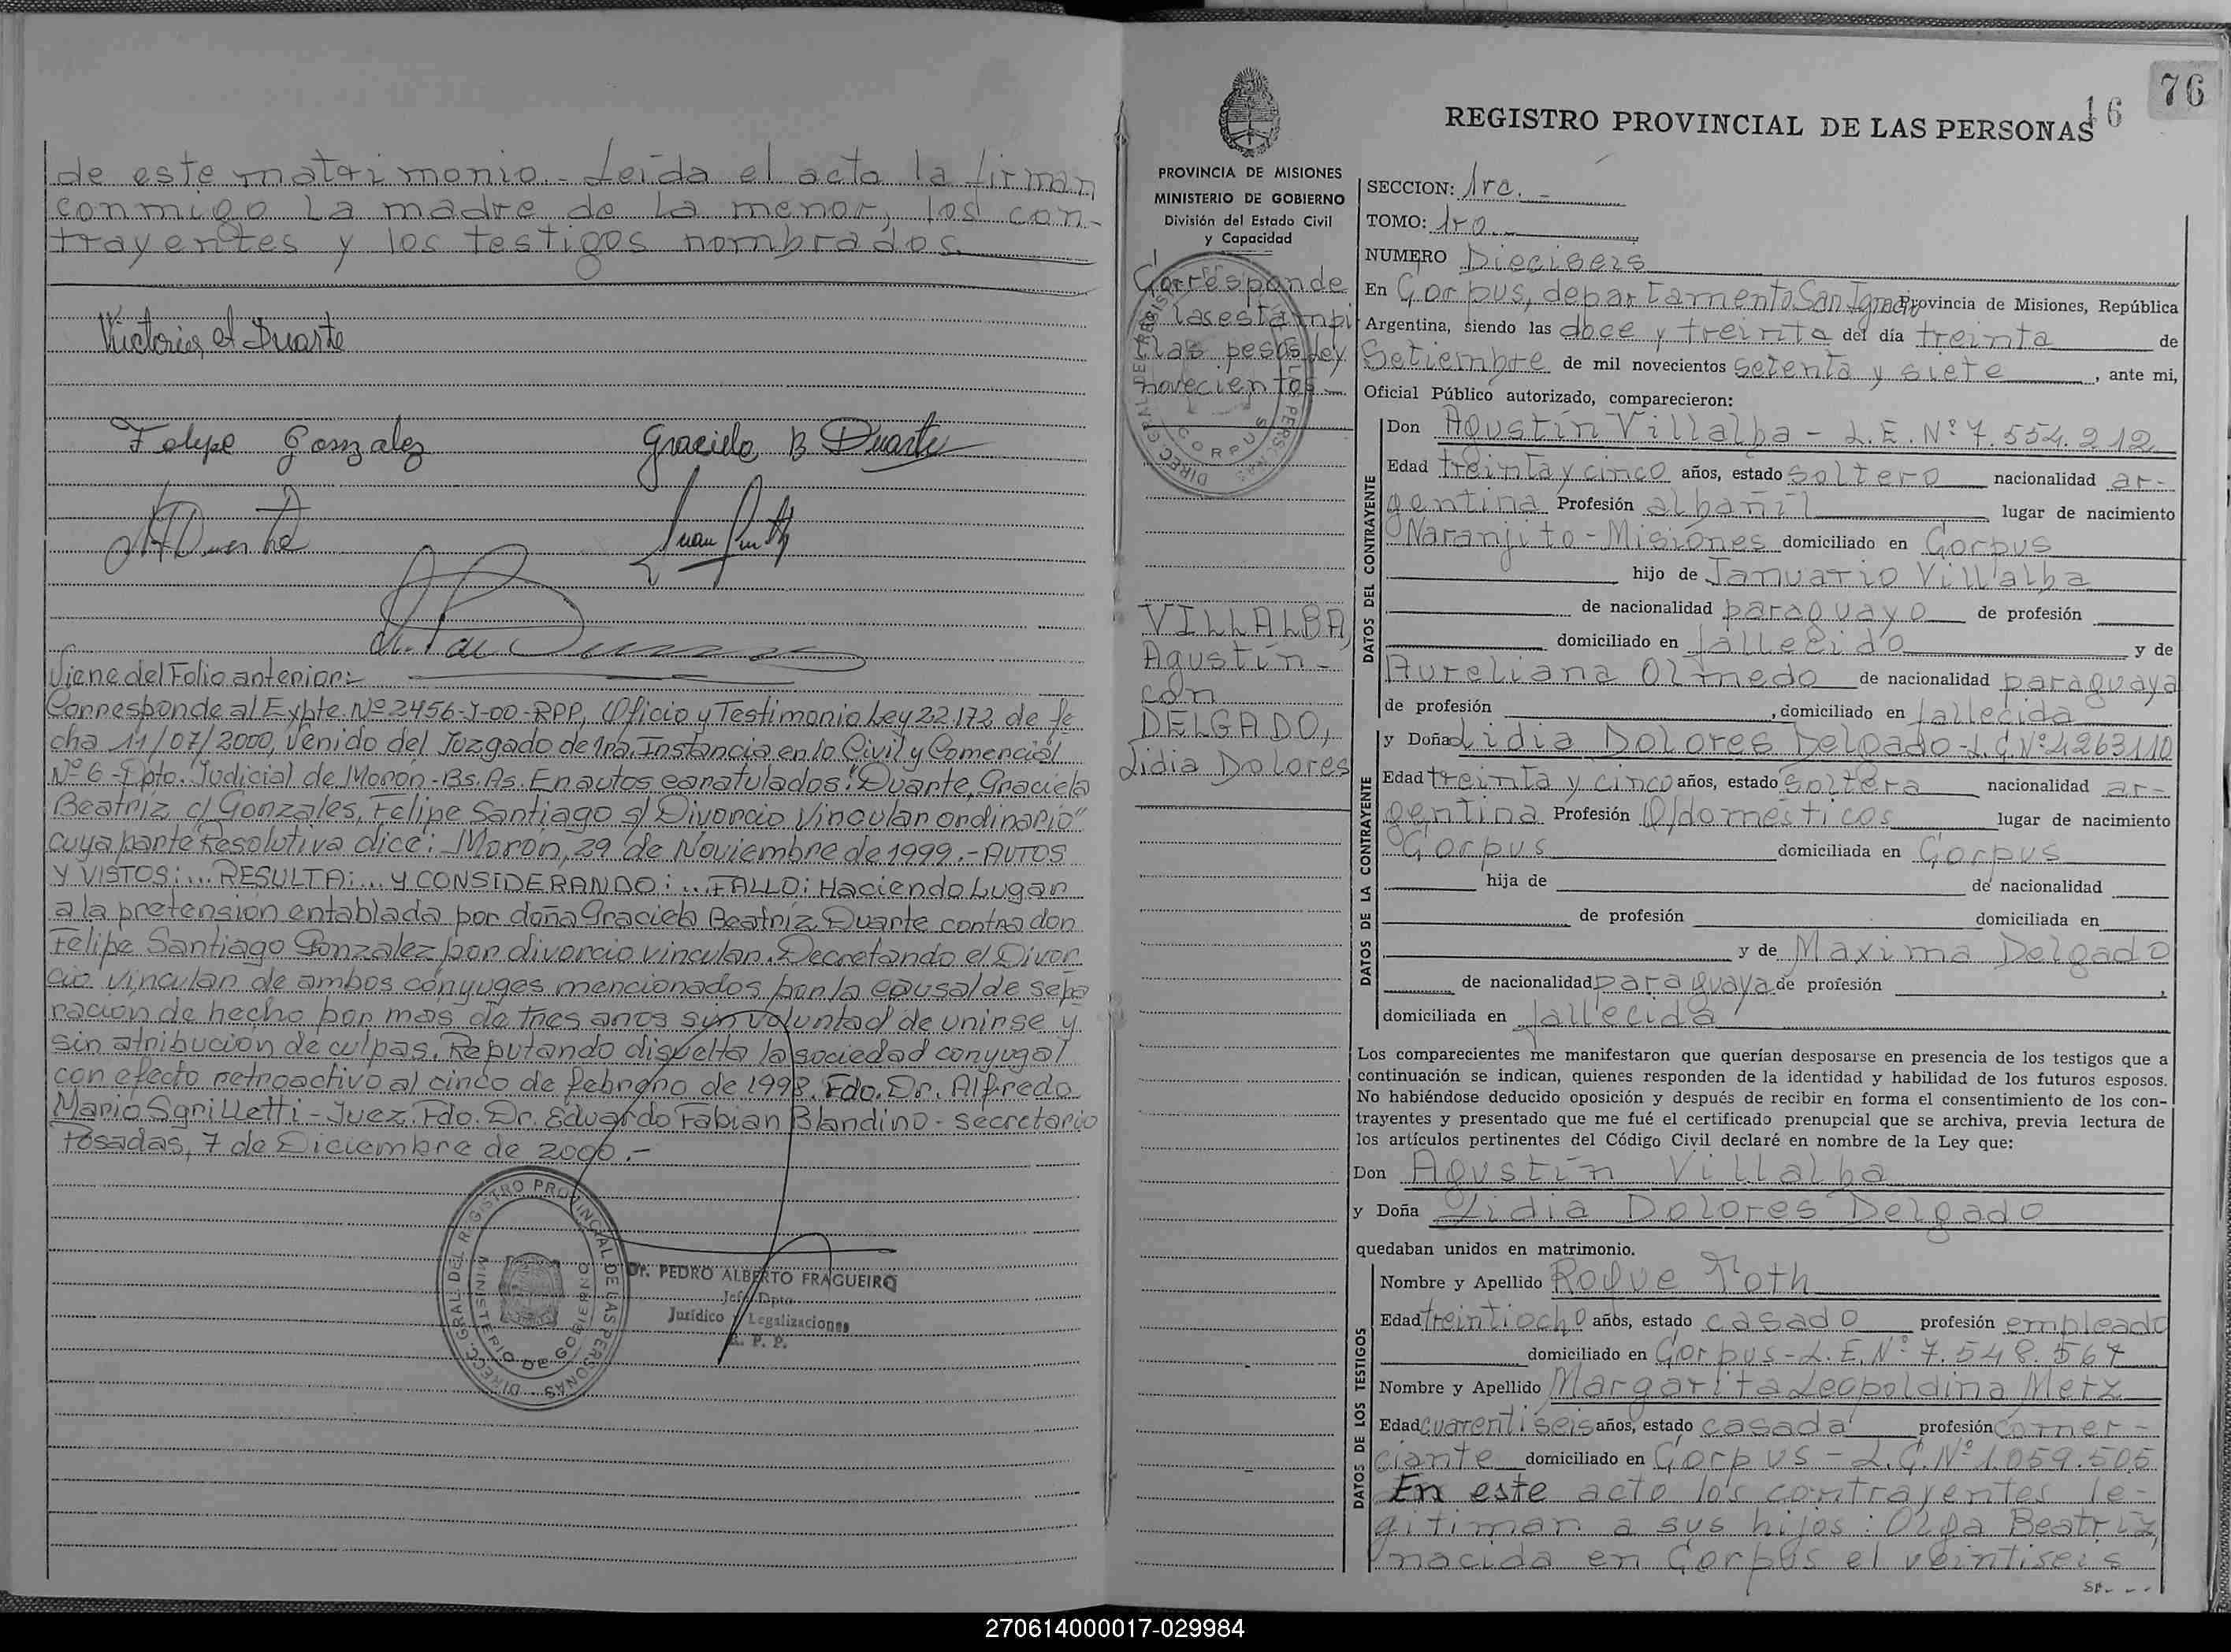 de este matrimonio.- Leída el acta la firman
conmigo la madre de la menor, los con-
trayentes y los testigos nombrados.
Victoria A Duarte
Felipe Gonzalez
Graciela B Duarte
Viene del Folio anterior:
Corresponde al Expte. Nº 2456-J-00-RPP, Oficio y Testimonio Ley 22.172 de fe
cha 11/07/2000, Venido del Juzgado de 1ra. Instancia en lo Civil y Comercial
Nº 6 - Dpto. Judicial de Morón - Bs. As. En autos caratulados: "Duarte, Graciela
Beatriz c/ Gonzales, Felipe Santiago s/ Divorcio Vincular ordinario"
cuya parte Resolutiva dice: Morón, 29 de Noviembre de 1999.- AUTOS
Y VISTOS:... RESULTA:... Y CONSIDERANDO:... FALLO: Haciendo Lugar
a la pretension entablada por doña Graciela Beatriz Duarte contra don
Felipe Santiago Gonzalez por divorcio vincular. Decretando el Divor
cio vincular de ambos cónyuges mencionados por la causal de sepa
racion de hecho por mas de tres años sin voluntad de unirse y
sin atribucion de culpas. Reputando disuelta la sociedad conyugal
con efecto retroactivo al cinco de febrero de 1998. Fdo. Dr. Alfredo
Mario Sgrilletti - Juez. Fdo. Dr. Eduardo Fabian Blandino - Secretario
Posadas, 7 de Diciembre de 2000.-
DIRECC. GRAL DEL REGISTRO PROVINCIAL DE LAS PERSONAS
MINISTERIO DE GOBIERNO
Dr. PEDRO ALBERTO FRAGUEIRO
Jefe Dpto.
Jurídico y Legalizaciones
R. P. P.
76
16
REGISTRO PROVINCIAL DE LAS PERSONAS
PROVINCIA DE MISIONES
MINISTERIO DE GOBIERNO
División del Estado Civil
y Capacidad
Corresponde
las estampi
llas pesos ley
novecientos
CORPUS
VILLALBA,
Agustín-
con
DELGADO,
Lidia Dolores
SECCION: 1ra.-
TOMO: 1ro.-
NUMERO Dieciseis
En Corpus, departamento San Ignacio Provincia de Misiones, República
Argentina, siendo las doce y treinta del día treinta de
Setiembre de mil novecientos setenta y siete, ante mi,
Oficial Público autorizado, comparecieron:
DATOS DEL CONTRAYENTE
Don Agustín Villalba - L.E. Nº 7.554.212
Edad treinta y cinco años, estado soltero nacionalidad ar-
gentina Profesión albañil lugar de nacimiento
Naranjito - Misiones domiciliado en Corpus
hijo de Januario Villalba
de nacionalidad paraguayo de profesión
domiciliado en fallecido y de
Aureliana Olmedo de nacionalidad paraguaya
de profesión , domiciliado en fallecida
DATOS DE LA CONTRAYENTE
y Doña Lidia Dolores Delgado - L.C. Nº 4263110
Edad treinta y cinco años, estado soltera nacionalidad ar-
gentina Profesión Q/domésticos lugar de nacimiento
Corpus domiciliada en Corpus
hija de de nacionalidad
de profesión domiciliada en
y de Maxima Delgado
de nacionalidad paraguaya de profesión ,
domiciliada en fallecida
Los comparecientes me manifestaron que querían desposarse en presencia de los testigos que a
continuación se indican, quienes responden de la identidad y habilidad de los futuros esposos.
No habiéndose deducido oposición y después de recibir en forma el consentimiento de los con-
trayentes y presentado que me fué el certificado prenupcial que se archiva, previa lectura de
los artículos pertinentes del Código Civil declaré en nombre de la Ley que:
Don Agustín Villalba
y Doña Lidia Dolores Delgado
quedaban unidos en matrimonio.
DATOS DE LOS TESTIGOS
Nombre y Apellido Roque Toth
Edad treintiocho años, estado casado profesión empleado
domiciliado en Corpus - L.E. Nº 7.548.567
Nombre y Apellido Margarita Leopoldina Metz
Edad cuarentiseis años, estado casada profesión comer-
ciante domiciliado en Corpus - L.C. Nº 1.059.505
En este acto los contrayentes le-
gitiman a sus hijos: Olga Beatriz,
nacida en Corpus el veintiseis
270614000017-029984